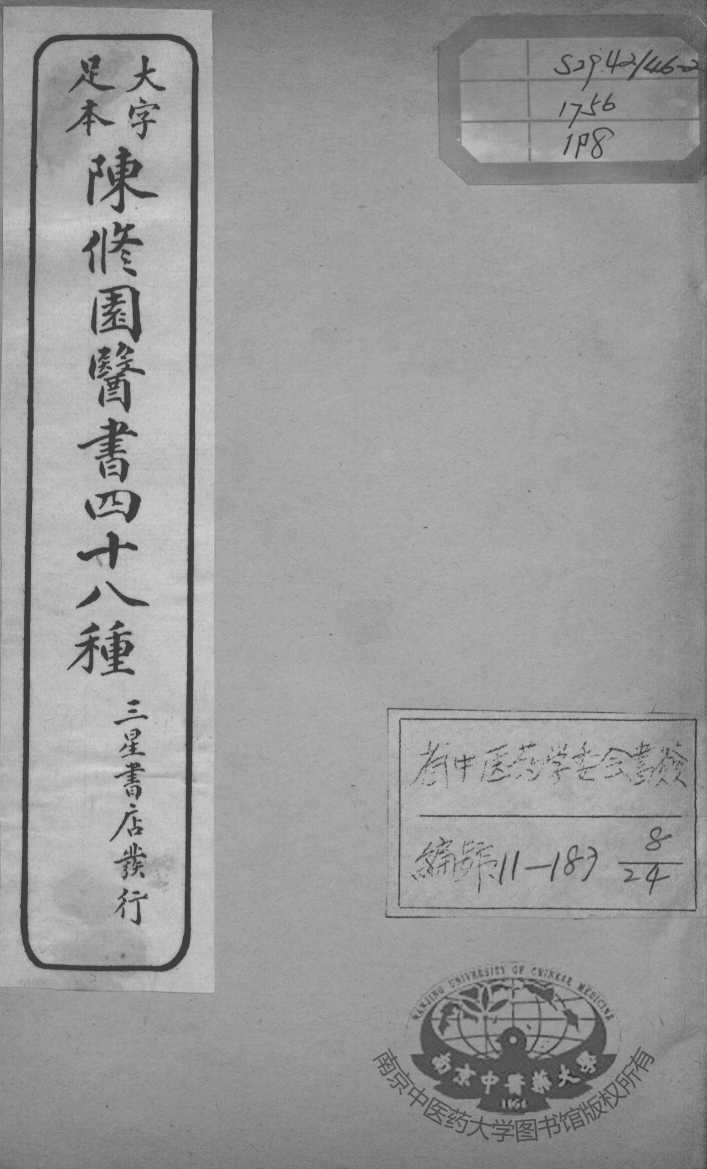 大字
足本
陳修園醫書四十八種
三星書店發行
S29.42/46-2
1756
1P8
中医药学委会
編號11-187 8/24
NANJING UNIVERSITY OF CHINESE MEDICINE
南京中醫藥大學
1954
南京中医药大学图书馆版权所有